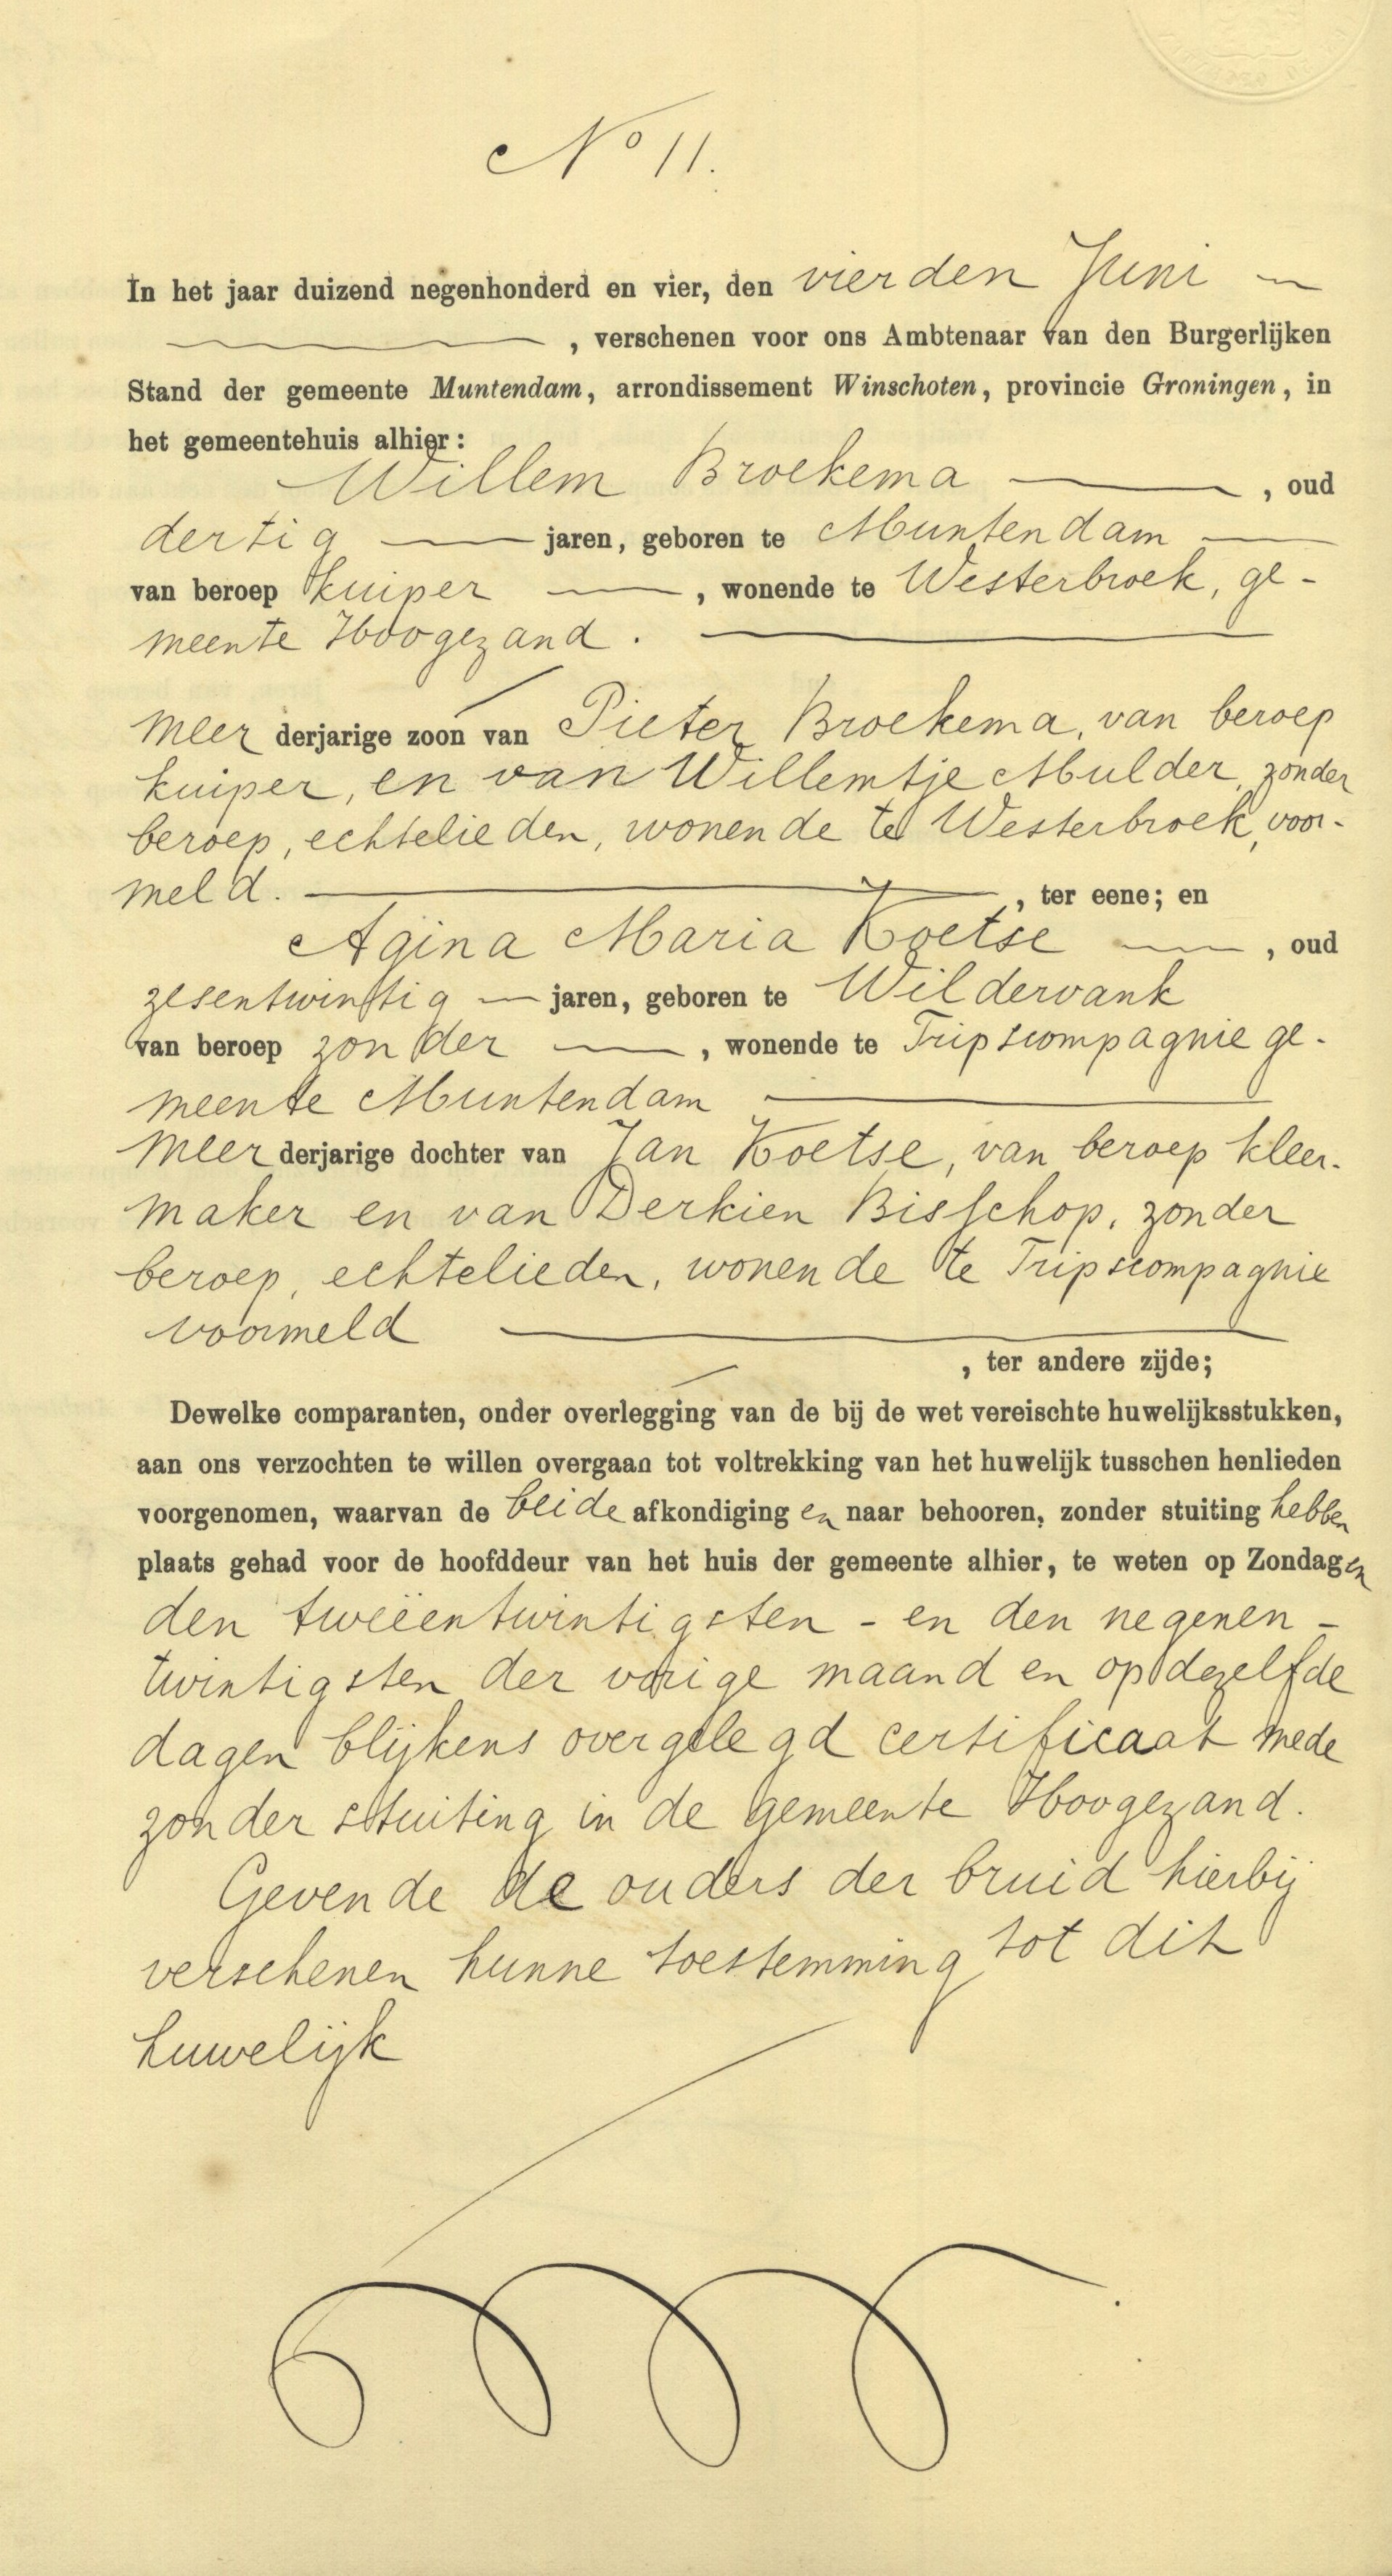 No 11.
In het jaar duizend negenhonderd en vier, den vierden Juni
, verschenen voor ons Ambtenaar van den Burgerlijken
Stand der gemeente Muntendam, arrondissement Winschoten, provincie Groningen, in
het gemeentehuis alhier:
Willem Broekema , oud
dertig jaren, geboren te Muntendam
van beroep kuiper , wonende te Westerbroek, ge-
meente Hoogezand.
meer derjarige zoon van Pieter Broekema, van beroep
kuiper, en van Willemtje Mulder, zonder
beroep, echtelieden, wonende te Westerbroek, voor-
meld. , ter eene; en
Agina Maria Koetse , oud
zesentwintig jaren, geboren te Wildervank
van beroep zonder , wonende te Tripscompagnie ge-
meente Muntendam
meer derjarige dochter van Jan Koetse, van beroep kleer-
maker en van Derkien Bisschop, zonder
beroep, echtelieden, wonende te Tripscompagnie
voormeld
, ter andere zijde;
Dewelke comparanten, onder overlegging van de bij de wet vereischte huwelijksstukken,
aan ons verzochten te willen overgaan tot voltrekking van het huwelijk tusschen henlieden
voorgenomen, waarvan de beide afkondiging en naar behooren, zonder stuiting hebben
plaats gehad voor de hoofddeur van het huis der gemeente alhier, te weten op Zondagen
den tweëentwintigsten - en den negenen-
twintigsten der vorige maand en op dezelfde
dagen blijkens overgelegd certificaat mede
zonder stuiting in de gemeente Hoogezand.
Gevende de ouders der bruid hierbij
verschenen hunne toestemming tot dit
huwelijk